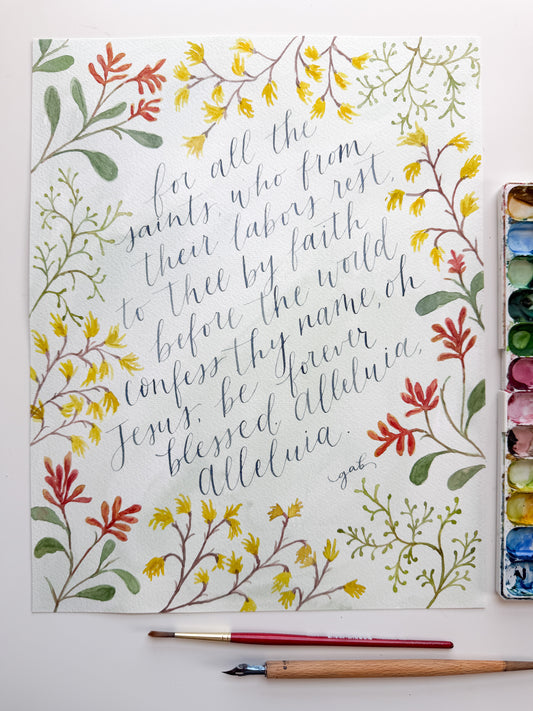 for all the
saints, who from
their labors rest,
to thee by faith
before the world
confess thy name, oh
Jesus, be forever
blessed. Alleluia,
Alleluia.
gab